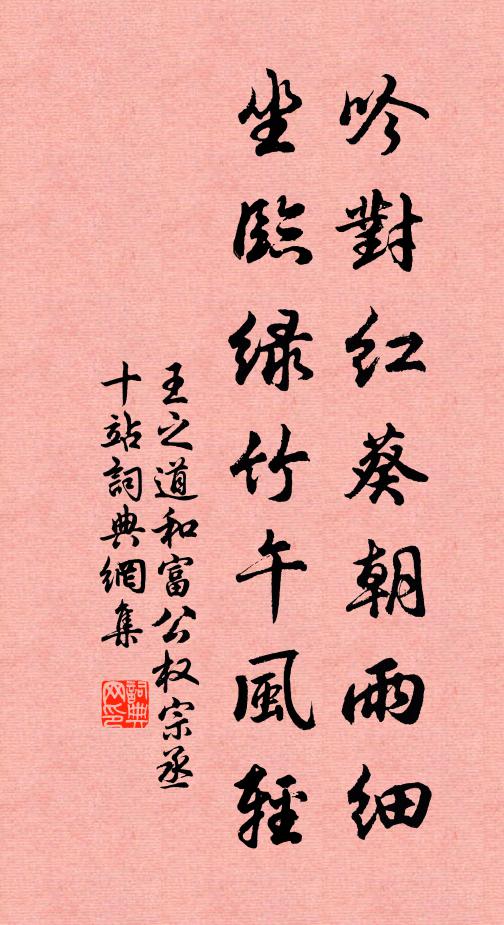 吟對紅葵朝雨細
坐臨綠竹午風輕
王之道和富公权宗丞
十站詞典網集
詞典网印